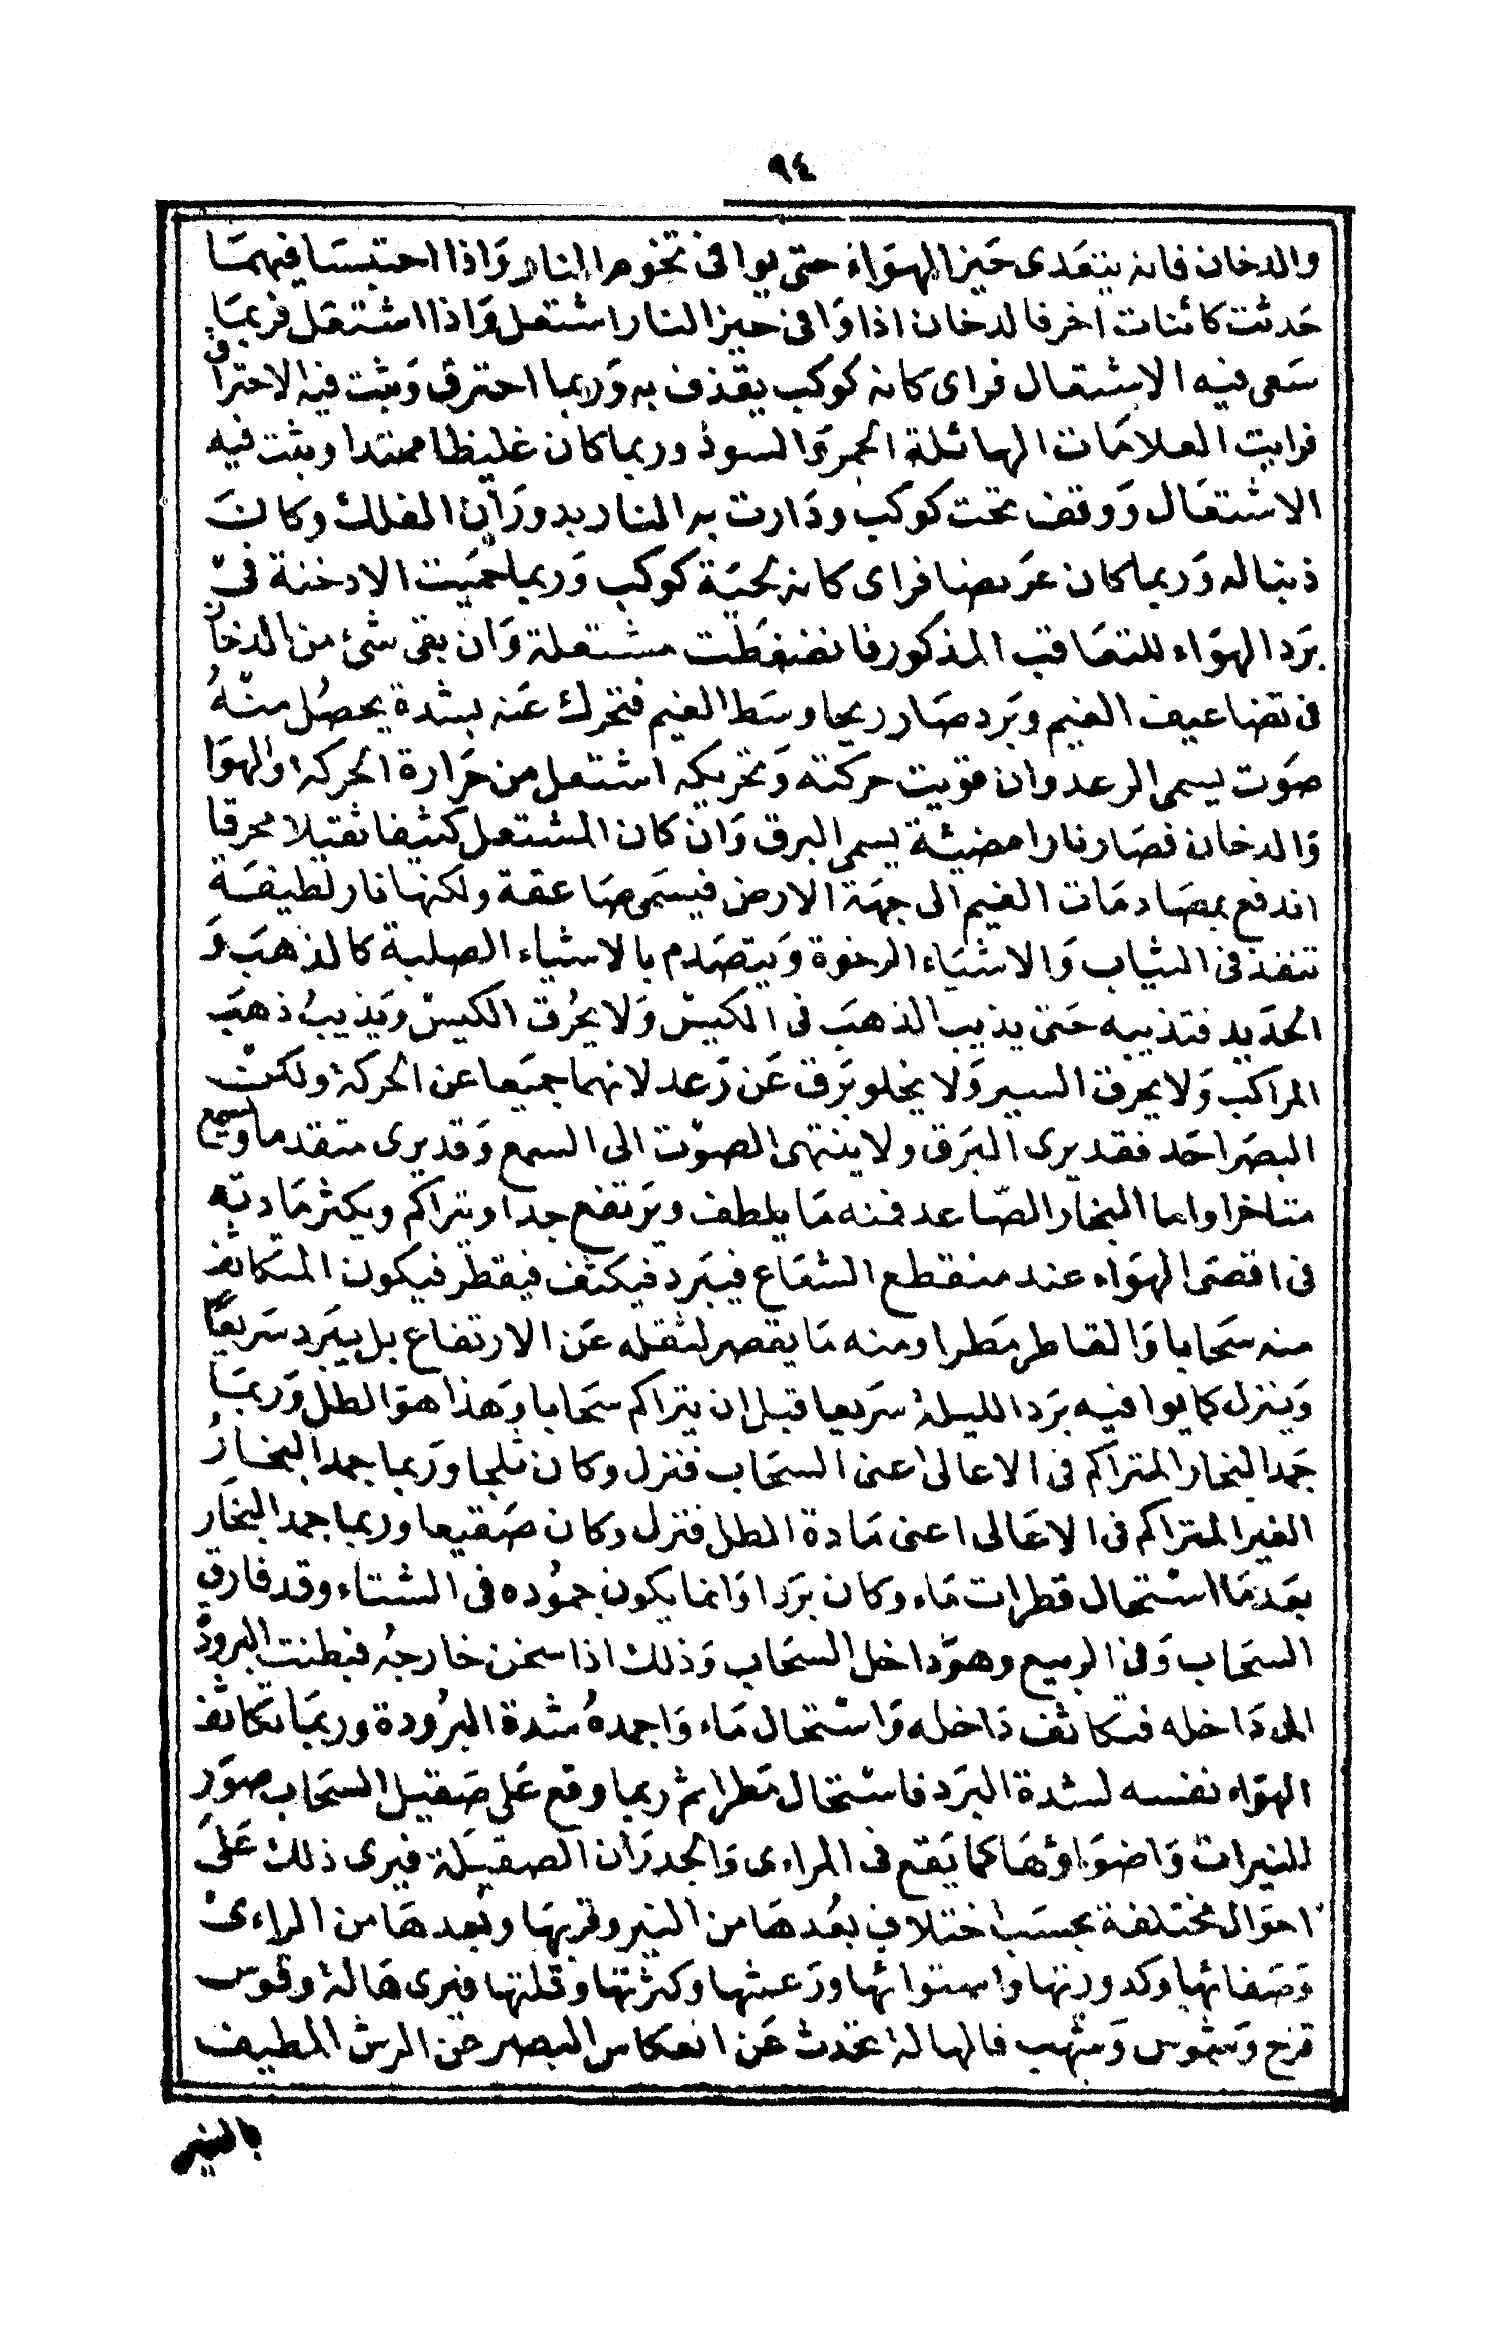 ٩٤
والدخان فانه يتعدى حيز الهواء حتى يوافى تخوم النار وَاذا احتبسَا فيهمَا
حَدثت كائنات اخر فالدخان اذا وَافى حيز النار اشتعل وَاذا اشتعَل فربمَا
سَعى فيه الاشتعال فراى كانه كوكب يقذف به وَربما احترق وَثبت فيه الاحتراق
فرايت العلامَات الهائلة الحمر وَالسود وربما كان غليظا ممتدا وثبت فيه
الاشتعَال وَوقف تحت كوكب ودَارت به النار بدورَان الفلك وكان
ذنبا له وَربما كان عرَيضا فراى كانه لحيَة كوكب وَربما حميَت الادخنة فى
برَد الهوَاء للتعَاقب المذكور فانضغطَت مشتعلة وَان بقى شئ من الدخان
فى تضاعيف الغيم وبَرد صَار ريحا وسَط الغيم فتحرك عَنه بشدة يحصُل منْهُ
صَوت يسمى الرعد وان قويت حركته وَتحريكه اشتعل من حَرارة الحركه والهوَا
وَالدخان فصَار نارا مضيئة يسمى البرق وَان كان المشتعل كثيفا ثقيلا محرقا
اندفع بمصَادمَات الغيم الى جهَة الارض فيسمَى صَاعقة ولكنها نار لطيفَة
تنفذ فى الثياب وَالاشيَاء الرخوة وَيتصَدم بالاشياء الصلبة كالذهبَ وَ
الحدَيد فتذيبه حَتى يذيب الذهبَ فى الكيسْ وَلا يحُرق الكيسْ وَيذيبُ ذهبَ
المراكب وَلا يحرق السير وَلا يخلو بَرق عَن رَعد لانهما جميَعا عن الحركة ولكن
البصَر احَد فقد يرى البَرق ولا ينتهى الصوْت الى السمع وَقد يرى متقدما وَيسمع
متاخرا واما البخار الصّاعد فمنه مَا يلطف ويرَتفع جدا ويتراكم ويكثر مَادته
فى اقصَى الهوَاء عند منقطع الشعَاع فيبَرد فيكثف فيقطر فيكون المتكاثف
منه سَحابا وَالقاطر مَطرا ومنه مَا يقصر لثقله عَن الارتفاع بل يبَرد سَريعًا
وَينزل كما يوافيه برَد الليلة سَريعا قبل ان يتراكم سحَابا وَهذا هوَ الطل وَربمَا
جَمد البخار المتراكم فى الاعالى اعنى السحَاب فنزل وكان ثلجا وَربما جمد البخارُ
الغير المتراكم فى الاعَالى اعنى مَادة الطل فنزل وكان صَقيعا وربما جمد البخَار
بعَد مَا اسْتحال قطرات مَاء وكان برَدا وَانما يكون جموُده فى الشتاء وقد فارق
السحَاب وَفى الربيع وهوَ داخل السحَاب وَذلك اذا سخن خارجُه فبطنت البرودة
الى دَاخله فتكاثف دَاخله وَاسْتحال مَاء وَاجمدهُ شدة البرُودة وربمَا تكاثف
الهوَاء نفسه لشدة البرَد فاسْتحال مَطرا ثم ربما وقع عَلى صَقيل السحَاب صوَر
للنيرات وَاضوَاؤهَا كما يَقع فى المراءى وَالجدرَان الصقيلَة فيرى ذلك عَلىَ
احوَال مختلفة بحسَب اختلاف بعُدهَا من النير وقربهَا وبُعدهَا من الراءى
وَصَفائها وكدورتها واستوائها ورَعشها وكثرتها وقلتها فيرى هَالة وقوس
قزح وَشموس وَشهب فالهالة تحدث عَن انعكاس البصر عَن الرش المطيف
بالنير